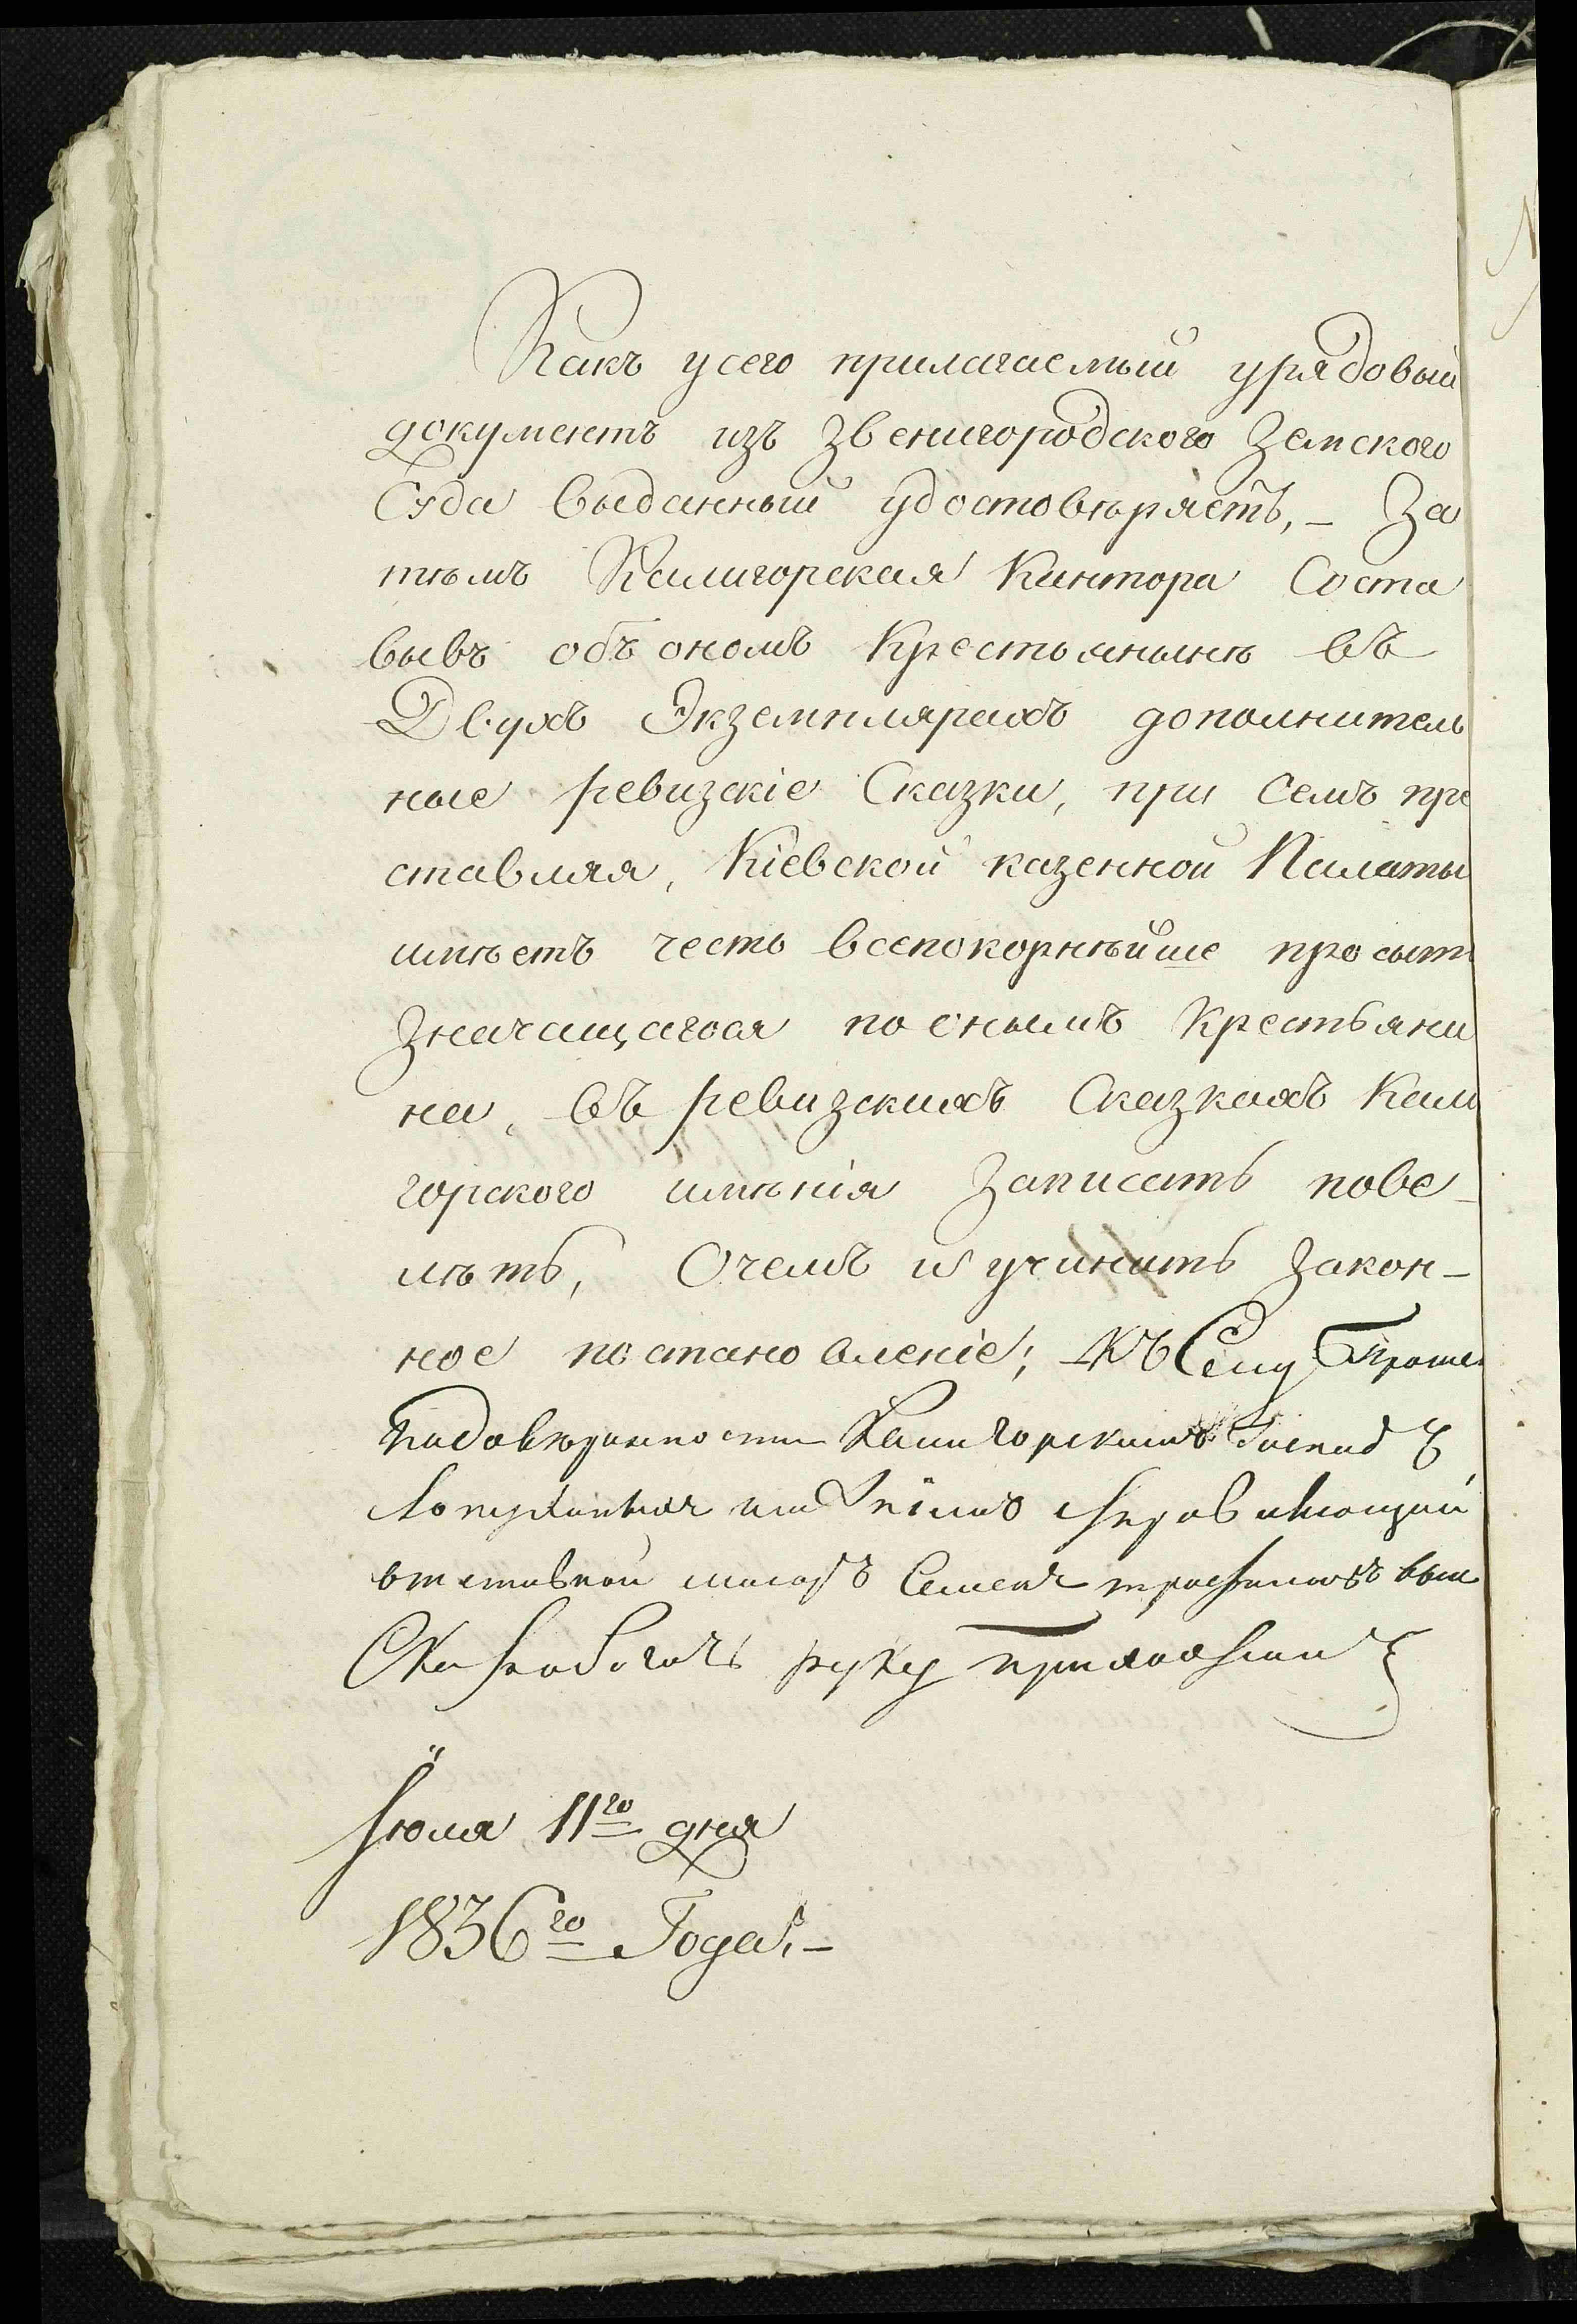 Какъ усего прилагаемый урядовый
документъ изъ Звенигородского Земского
Суда выданный удостовѣряетъ, – За
тѣмъ Калигорская Кантора Соста
вывъ объ ономъ Крестьянынѣ въ
Двухъ Экземплярахъ дополнитель
ные ревизскіе Сказки, при семъ пре
ставляя, Кіевской казенной Палаты
имѣетъ честь всепокорнѣйше просыть
Значащагося по онымъ Крестьяни
на, въ ревизскихъ Сказкахъ Кали
горского имѣнія Записать пове-
лѣть, Очемъ и учинить Закон-
ное постановленіе; къ Сему
Подовѣренности Калигорскимъ
Лопухиныхъ имѣніемъ управляющий
отставной Семенъ
руку приложилъ
Июля 11го дня
1836го Года. –